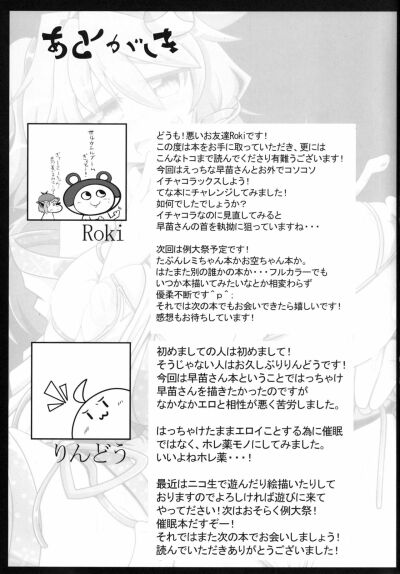 あとがき
Roki
どうも!悪いお友達Rokiです!
この度は本をお手に取っていただき、更には
こんなトコまで読んでくださり有難うございます!
今回はえっちな早苗さんとお外でコソコソ
イチャコラックスしよう!
てな本にチャレンジしてみました!
如何でしたでしょうか?
イチャコラなのに見直してみると
早苗さんの首を執拗に狙っていますね・・・
次回は例大祭予定です!
たぶんレミちゃん本かお空ちゃん本か。
はたまた別の誰かの本か・・・フルカラーでも
いつか本描いてみたいなとか相変わらず
優柔不断です^p^;
それでは次の本でもお会いできたら嬉しいです!
感想もお待ちしています!
りんどう
初めましての人は初めまして!
そうじゃない人はお久しぶりりんどうです!
今回は早苗さん本ということではっちゃけ
早苗さんを描きたかったのですが
なかなかエロと相性が悪く苦労しました。
はっちゃけたままエロイことする為に催眠
ではなく、ホレ薬モノにしてみました。
いいよねホレ薬・・・!
最近はニコ生で遊んだり絵描いたりして
おりますのでよろしければ遊びに来て
やってください!次はおそらく例大祭!
催眠本だすぞー!
それではまた次の本でお会いしましょう!
読んでいただきありがとうございました!